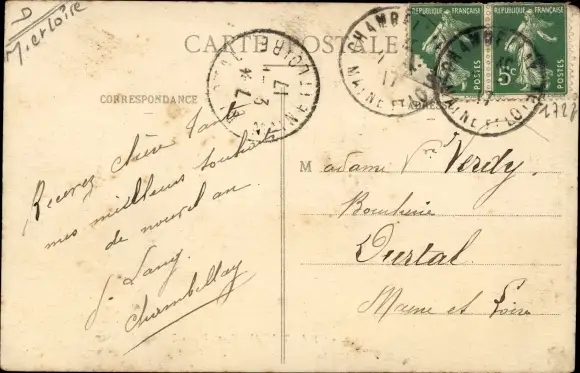 D
M et Loire
CARTE POSTALE
CORRESPONDANCE
ADRESSE
REPUBLIQUE FRANÇAISE
POSTES
REPUBLIQUE FRANÇAISE
5c
POSTES
MAINE ET
17
MAINE ET LOIRE
17
Recevez chère tante
mes meilleurs souhaits
de nouvel an.
J. Lany
Chambellay
Madame Vve Verdy.
Boucherie
Durtal
Maine et Loire